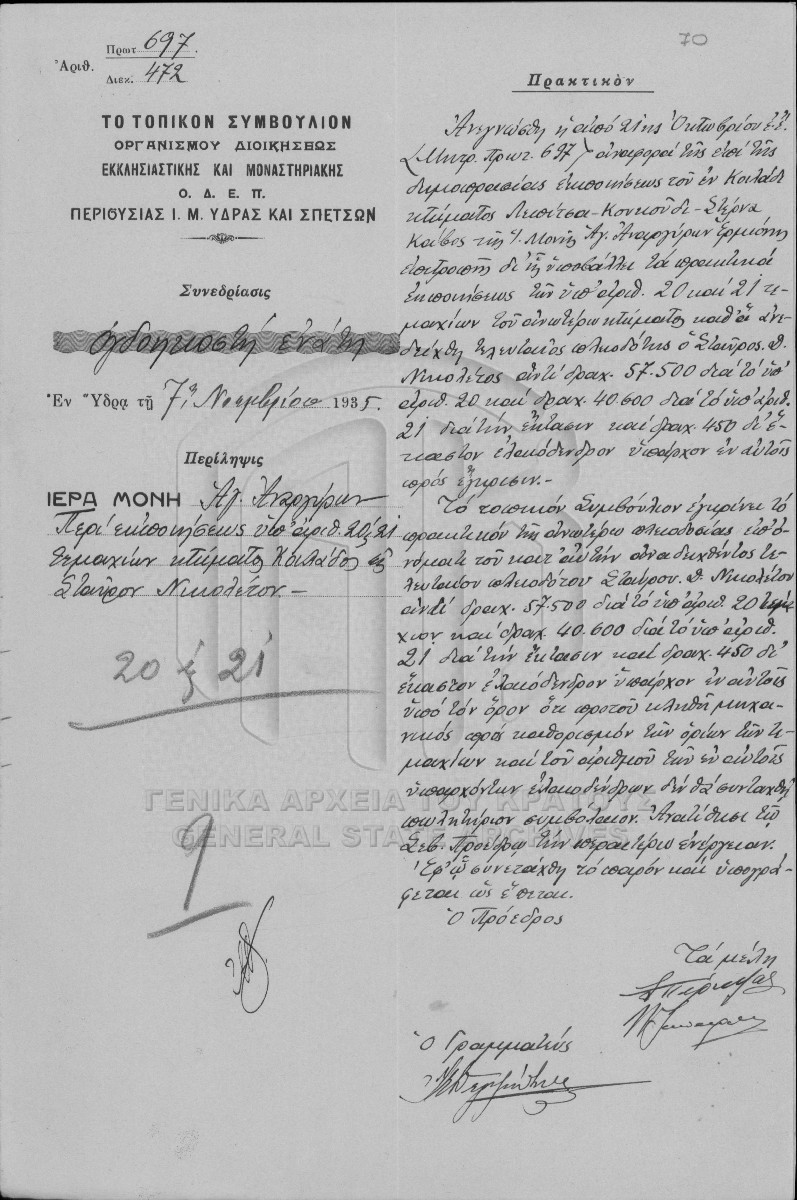 Ἀριθ. Πρωτ 697.
Διεκ. 472
ΤΟ ΤΟΠΙΚΟΝ ΣΥΜΒΟΥΛΙΟΝ
ΟΡΓΑΝΙΣΜΟΥ ΔΙΟΙΚΗΣΕΩΣ
ΕΚΚΛΗΣΙΑΣΤΙΚΗΣ ΚΑΙ ΜΟΝΑΣΤΗΡΙΑΚΗΣ
Ο. Δ. Ε. Π.
ΠΕΡΙΟΥΣΙΑΣ Ι. Μ. ΥΔΡΑΣ ΚΑΙ ΣΠΕΤΣΩΝ
Συνεδρίασις
ὀγδοηκοστή ἐνάτη
Ἐν Ὕδρᾳ τῇ 7ῃ Νοεμβρίου 1935.
Περίληψις
ΙΕΡΑ ΜΟΝΗ Ἁγ. Ἀναργύρων
Περί ἐκποιήσεως ὑπ' ἀριθ. 20 ξ 21
τεμαχίων κτήματος Κοιλάδος εἰς
Σταῦρον Νικολέτον.-
20 ξ 21
9
70
Πρακτικὸν
Ἀνεγνώσθη ἡ ἀπό 21ης Ὀκτωβρίου ἐ.ἔ.
(Μητρ. Πρωτ. 697) ἀναφορά τῆς ἐπί τῆς
δημοπρασίας ἐκποιήσεως τοῦ ἐν Κοιλάδι
κτήματος Λεπίτσα-Κουκούδι-Στέρνα
Κάβος τῆς Ἱ. Μονῆς Ἁγ. Ἀναργύρων Ἑρμιόνης
ἐπιτροπῆς δι' ἧς ὑποβάλλει τά πρακτικά
ἐκποιήσεως τῶν ὑπ' ἀριθ. 20 καί 21 τε-
μαχίων τοῦ ἀνωτέρω κτήματος καθ' ἅ ἀνε-
δείχθη τελευταῖος πλειοδότης ὁ Σταῦρος. Θ.
Νικολέτος ἀντί δραχ. 57.500 διά τό ὑπ'
ἀριθ. 20 καί δραχ. 40.600 διά τό ὑπ' ἀριθ.
21 διά τήν ἔκτασιν καί δραχ. 450 δι' ἕ-
καστον ἐλαιόδενδρον ὑπάρχον ἐν αὐτοῖς
πρός ἔγκρισιν.-
Τό τοπικόν Συμβούλιον ἐγκρίνει τό
πρακτικόν τῆς ἀνωτέρω πλειοδοσίας ἐπ' ὀ-
νόματι τοῦ κατ' αὐτήν ἀναδειχθέντος τε-
λευταίου πλειοδότου Σταύρου. Θ. Νικολέτου
ἀντί δραχ. 57.500 διά τό ὑπ' ἀριθ. 20 τεμά-
χιον καί δραχ. 40.600 διά τό ὑπ' ἀριθ.
21 διά τήν ἔκτασιν καί δραχ. 450 δι'
ἕκαστον ἐλαιόδενδρον ὑπάρχον ἐν αὐτοῖς
ὑπό τόν ὅρον ὅτι προτοῦ κληθῇ μηχα-
νικός πρός καθορισμόν τῶν ὁρίων τῶν τε-
μαχίων καί τοῦ ἀριθμοῦ τῶν ἐν αὐτοῖς
ὑπαρχόντων ἐλαιοδένδρων δέν θά συνταχθῇ
πωλητήριον συμβόλαιον. Ἀνατίθησι τῷ
Σεβ. Προέδρῳ τήν περαιτέρω ἐνέργειαν.
Ἐφ' ᾧ συνετάχθη τό παρόν καί ὑπογρά-
φεται ὡς ἕπεται.
Ὁ Πρόεδρος
Τά μέλη
Ὁ Γραμματεύς
ΓΕΝΙΚΑ ΑΡΧΕΙΑ ΤΟΥ ΚΡΑΤΟΥΣ
GENERAL STATE ARCHIVES